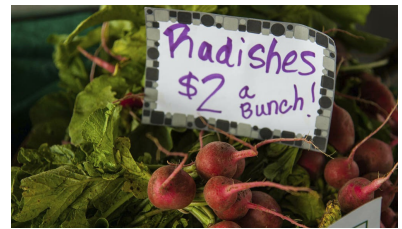 Radishes
$2 a
Bunch!